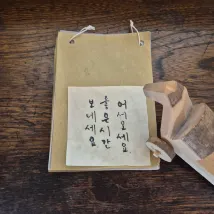 어서오세요.
좋은시간
보내세요